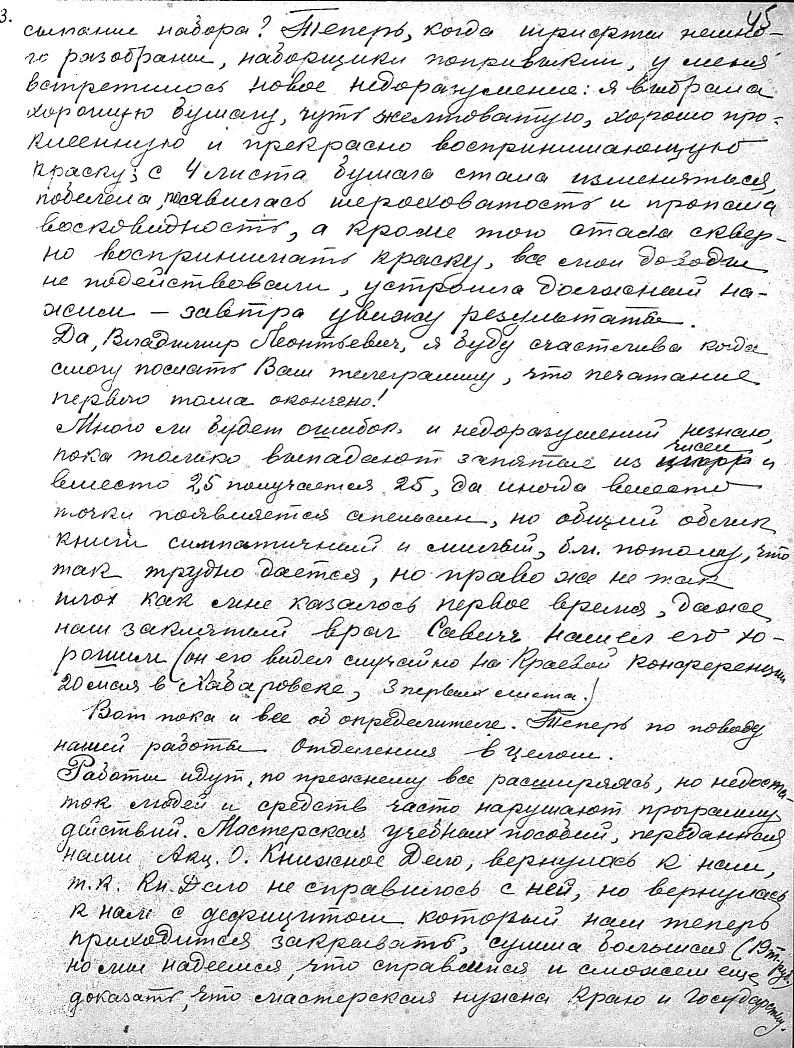 3.
45
сыпание набора? Теперь, когда шрифты немно-
го разобраны, наборщики попривыкли, у меня
встретилось новое недоразумение: я выбрала
хорошую бумагу, чуть желтоватую, хорошо про-
клеенную и прекрасно воспринимающую
краску; с 4 листа бумага стала изменяться,
побелела, появилась шероховатость и пропала
восковидность, а кроме того стала сквер-
но воспринимать краску, все мои доводы
не подействовали, устроила должный на-
жим – завтра увижу результаты.
Да, Владимир Леонтьевич, я буду счастлива когда
смогу послать Вам телеграмму, что печатание
первого тома окончено!
Много ли будет ошибок и недоразумений незнаю,
пока только выпадают запятые из чисел и
вместо 2,5 получается 25, да иногда вместо
точки появляется апельсин, но общий облик
книги симпатичный и милый, б.м. потому, что
так трудно дается, но право же не так
плох как мне казалось первое время, даже
наш заклятый враг Савич нашел его хо-
рошим (он его видел случайно на Краевой конференции
20 мая в Хабаровске, 3 первых листа.)
Вот пока и все об определителе. Теперь по поводу
нашей работы Отделения в целом.
Работы идут, по прежнему все расширяясь, но недоста-
ток людей и средств часто нарушают программу
действий. Мастерская учебных пособий, переданная
нами Акц. О. Книжное Дело, вернулась к нам,
т.к. Кн. Дело не справилось с ней, но вернулась
к нам с дефицитом который нам теперь
приходится закрывать, сумма большая (19 т. руб.)
но мы надеемся, что справимся и сможем еще
доказать, что мастерская нужна Краю и Государству.